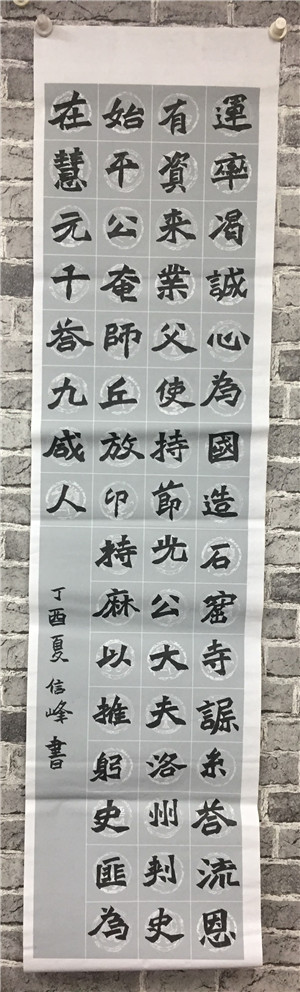 運率渴誠心為國造石窟寺糸荅流恩
有資来業父使持節光公大夫洛州刾史
始平公奄師丘放卬持麻以推躬史匪為
在慧元千荅九咸人
丁酉夏 信峰書